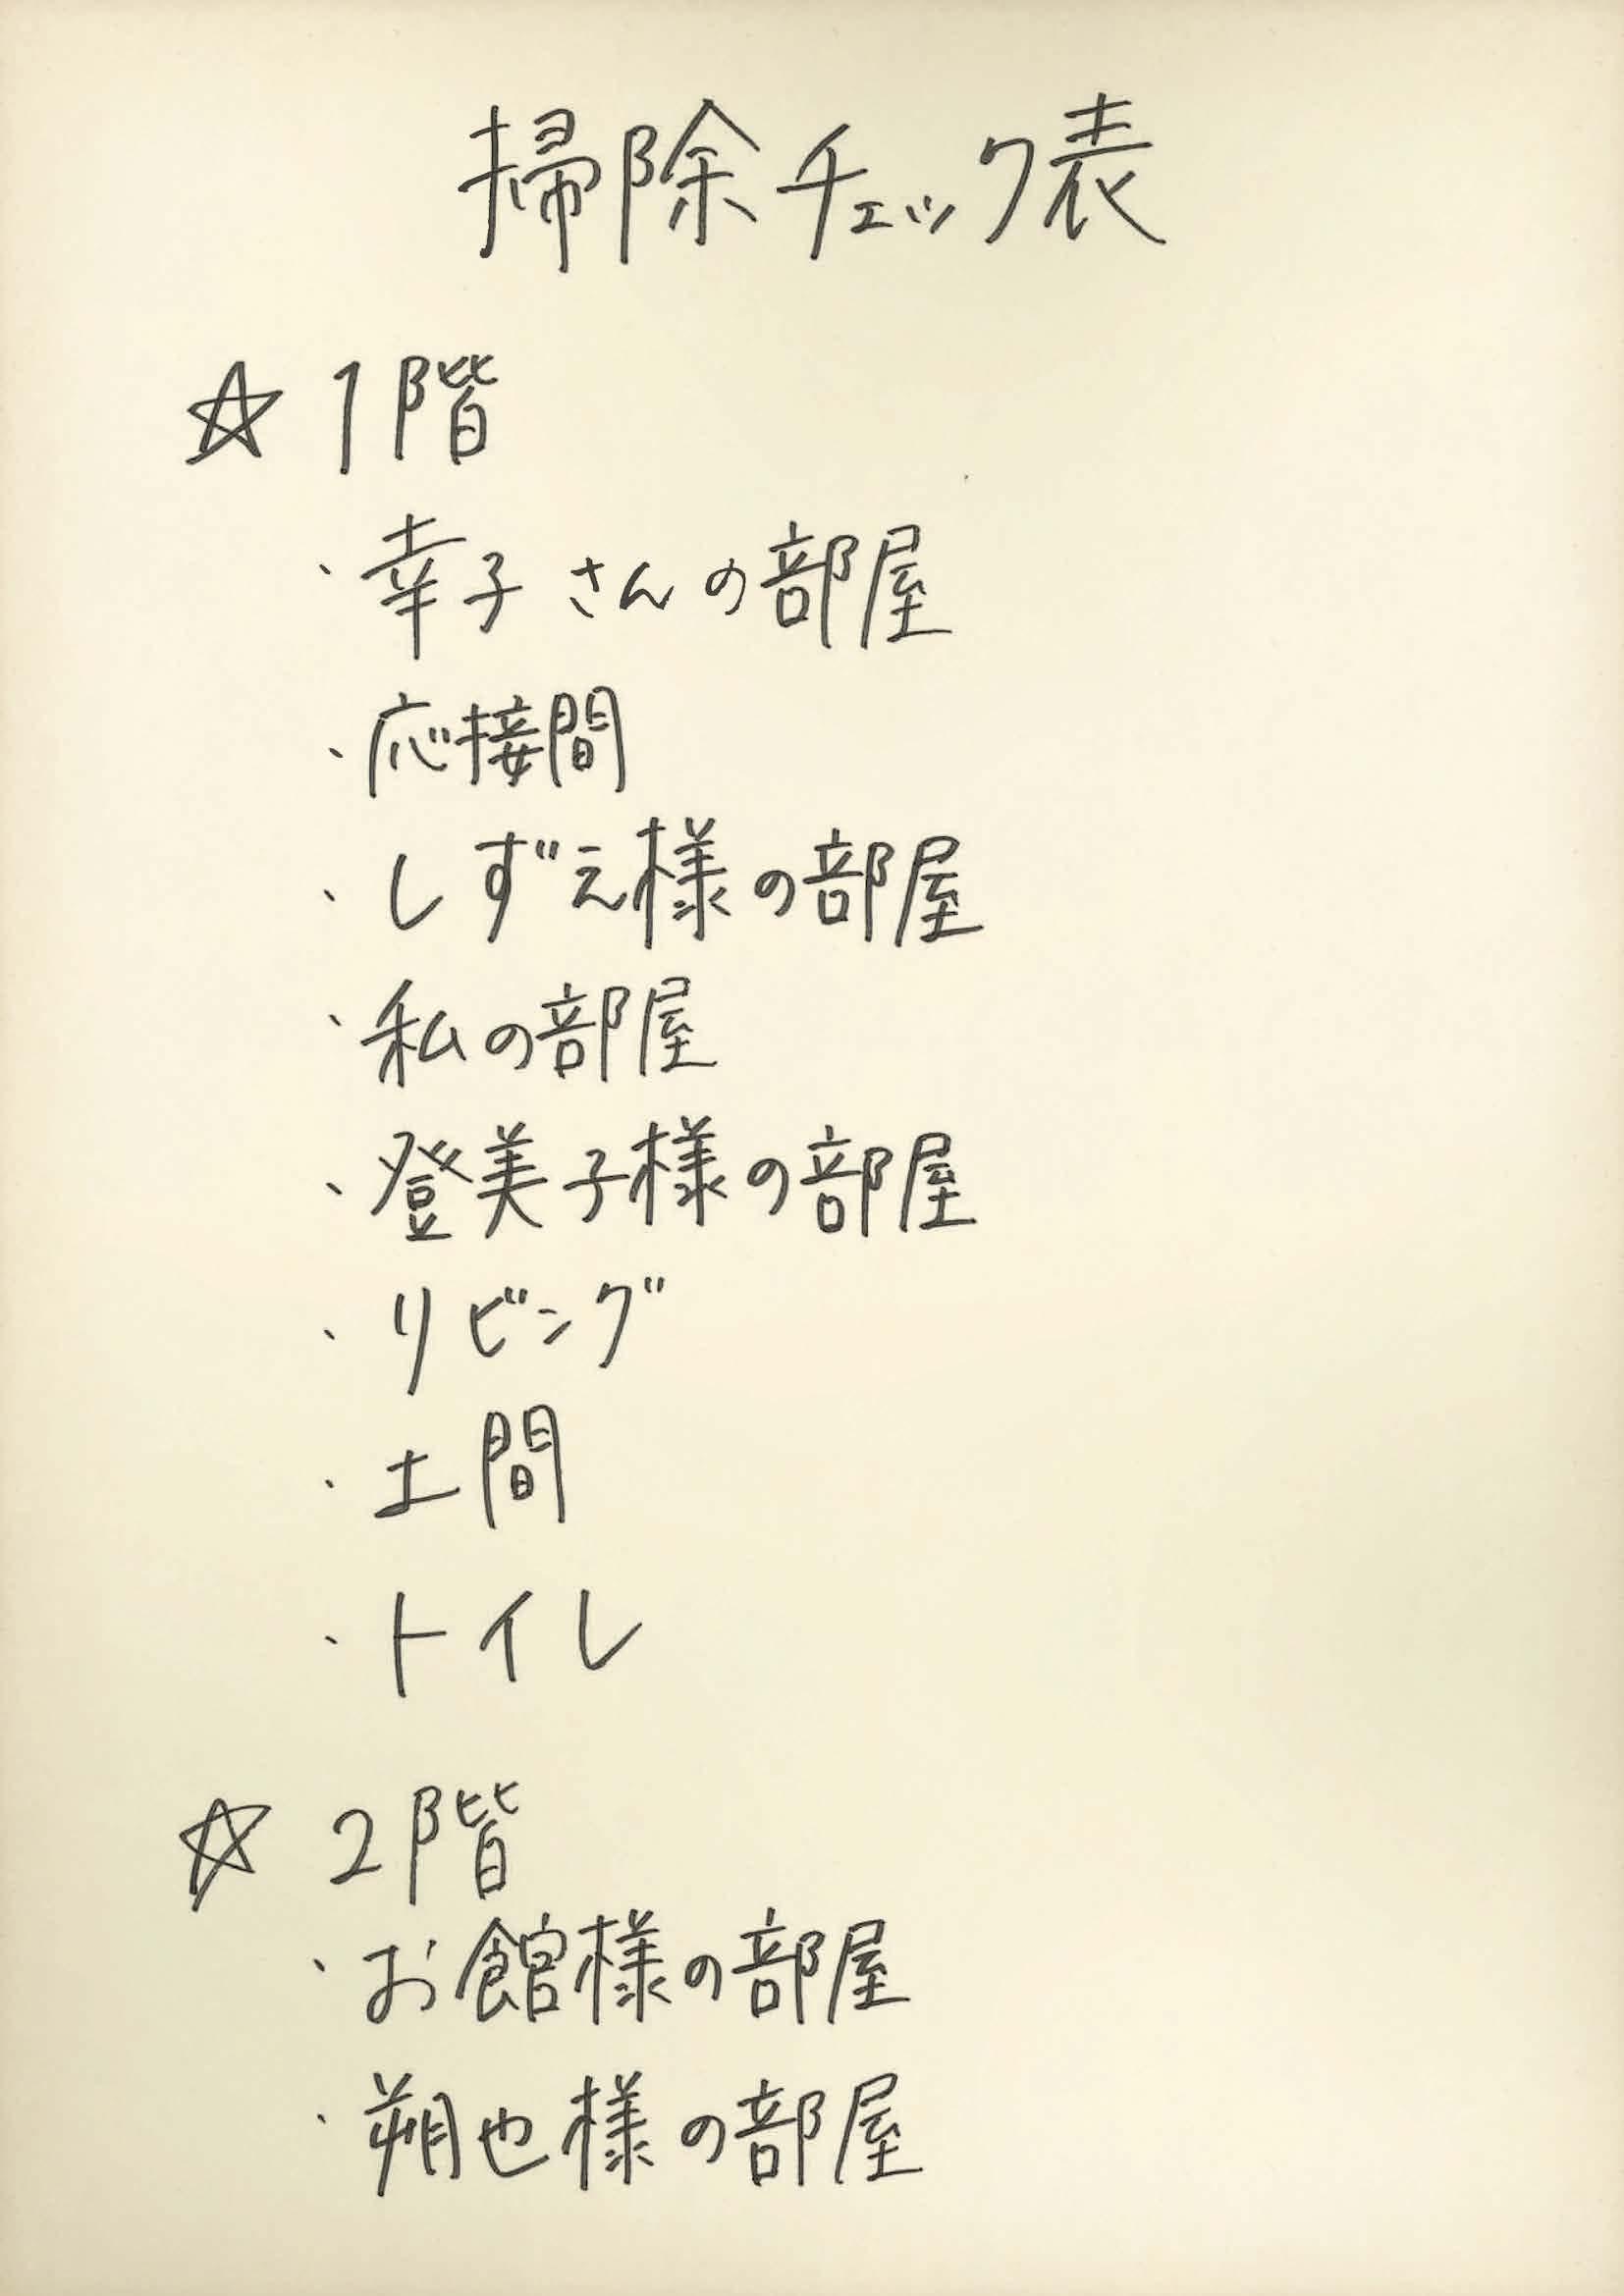 掃除チェック表
☆ 1階
・幸子さんの部屋
・応接間
・しずえ様の部屋
・私の部屋
・登美子様の部屋
・リビング
・土間
・トイレ
☆ 2階
・お館様の部屋
・朔也様の部屋